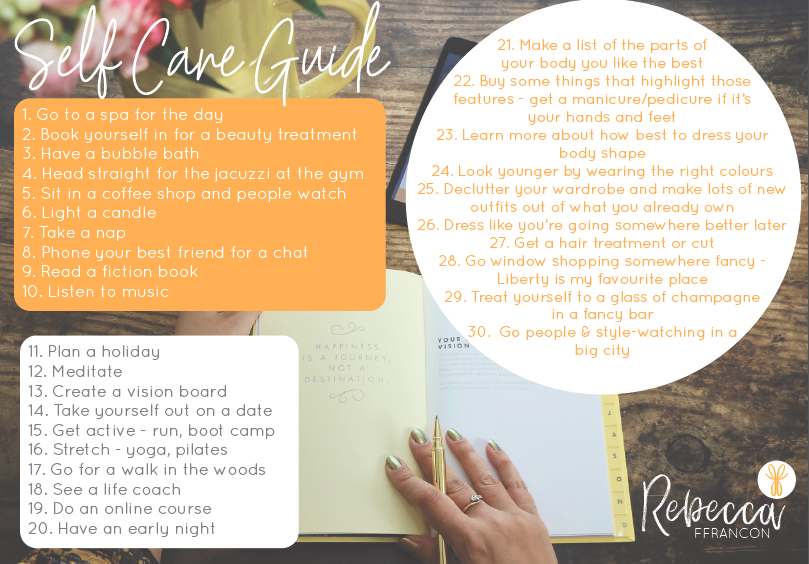 Self Care Guide
1. Go to a spa for the day
2. Book yourself in for a beauty treatment
3. Have a bubble bath
4. Head straight for the jacuzzi at the gym
5. Sit in a coffee shop and people watch
6. Light a candle
7. Take a nap
8. Phone your best friend for a chat
9. Read a fiction book
10. Listen to music
11. Plan a holiday
12. Meditate
13. Create a vision board
14. Take yourself out on a date
15. Get active - run, boot camp
16. Stretch - yoga, pilates
17. Go for a walk in the woods
18. See a life coach
19. Do an online course
20. Have an early night
21. Make a list of the parts of
your body you like the best
22. Buy some things that highlight those
features - get a manicure/pedicure if it's
your hands and feet
23. Learn more about how best to dress your
body shape
24. Look younger by wearing the right colours
25. Declutter your wardrobe and make lots of new
outfits out of what you already own
26. Dress like you're going somewhere better later
27. Get a hair treatment or cut
28. Go window shopping somewhere fancy -
Liberty is my favourite place
29. Treat yourself to a glass of champagne
in a fancy bar
30. Go people & style-watching in a
big city
HAPPINESS
IS A JOURNEY,
NOT A
DESTINATION.
YOUR
VISION
J
A
S
O
N
D
Rebecca
FFRANCON